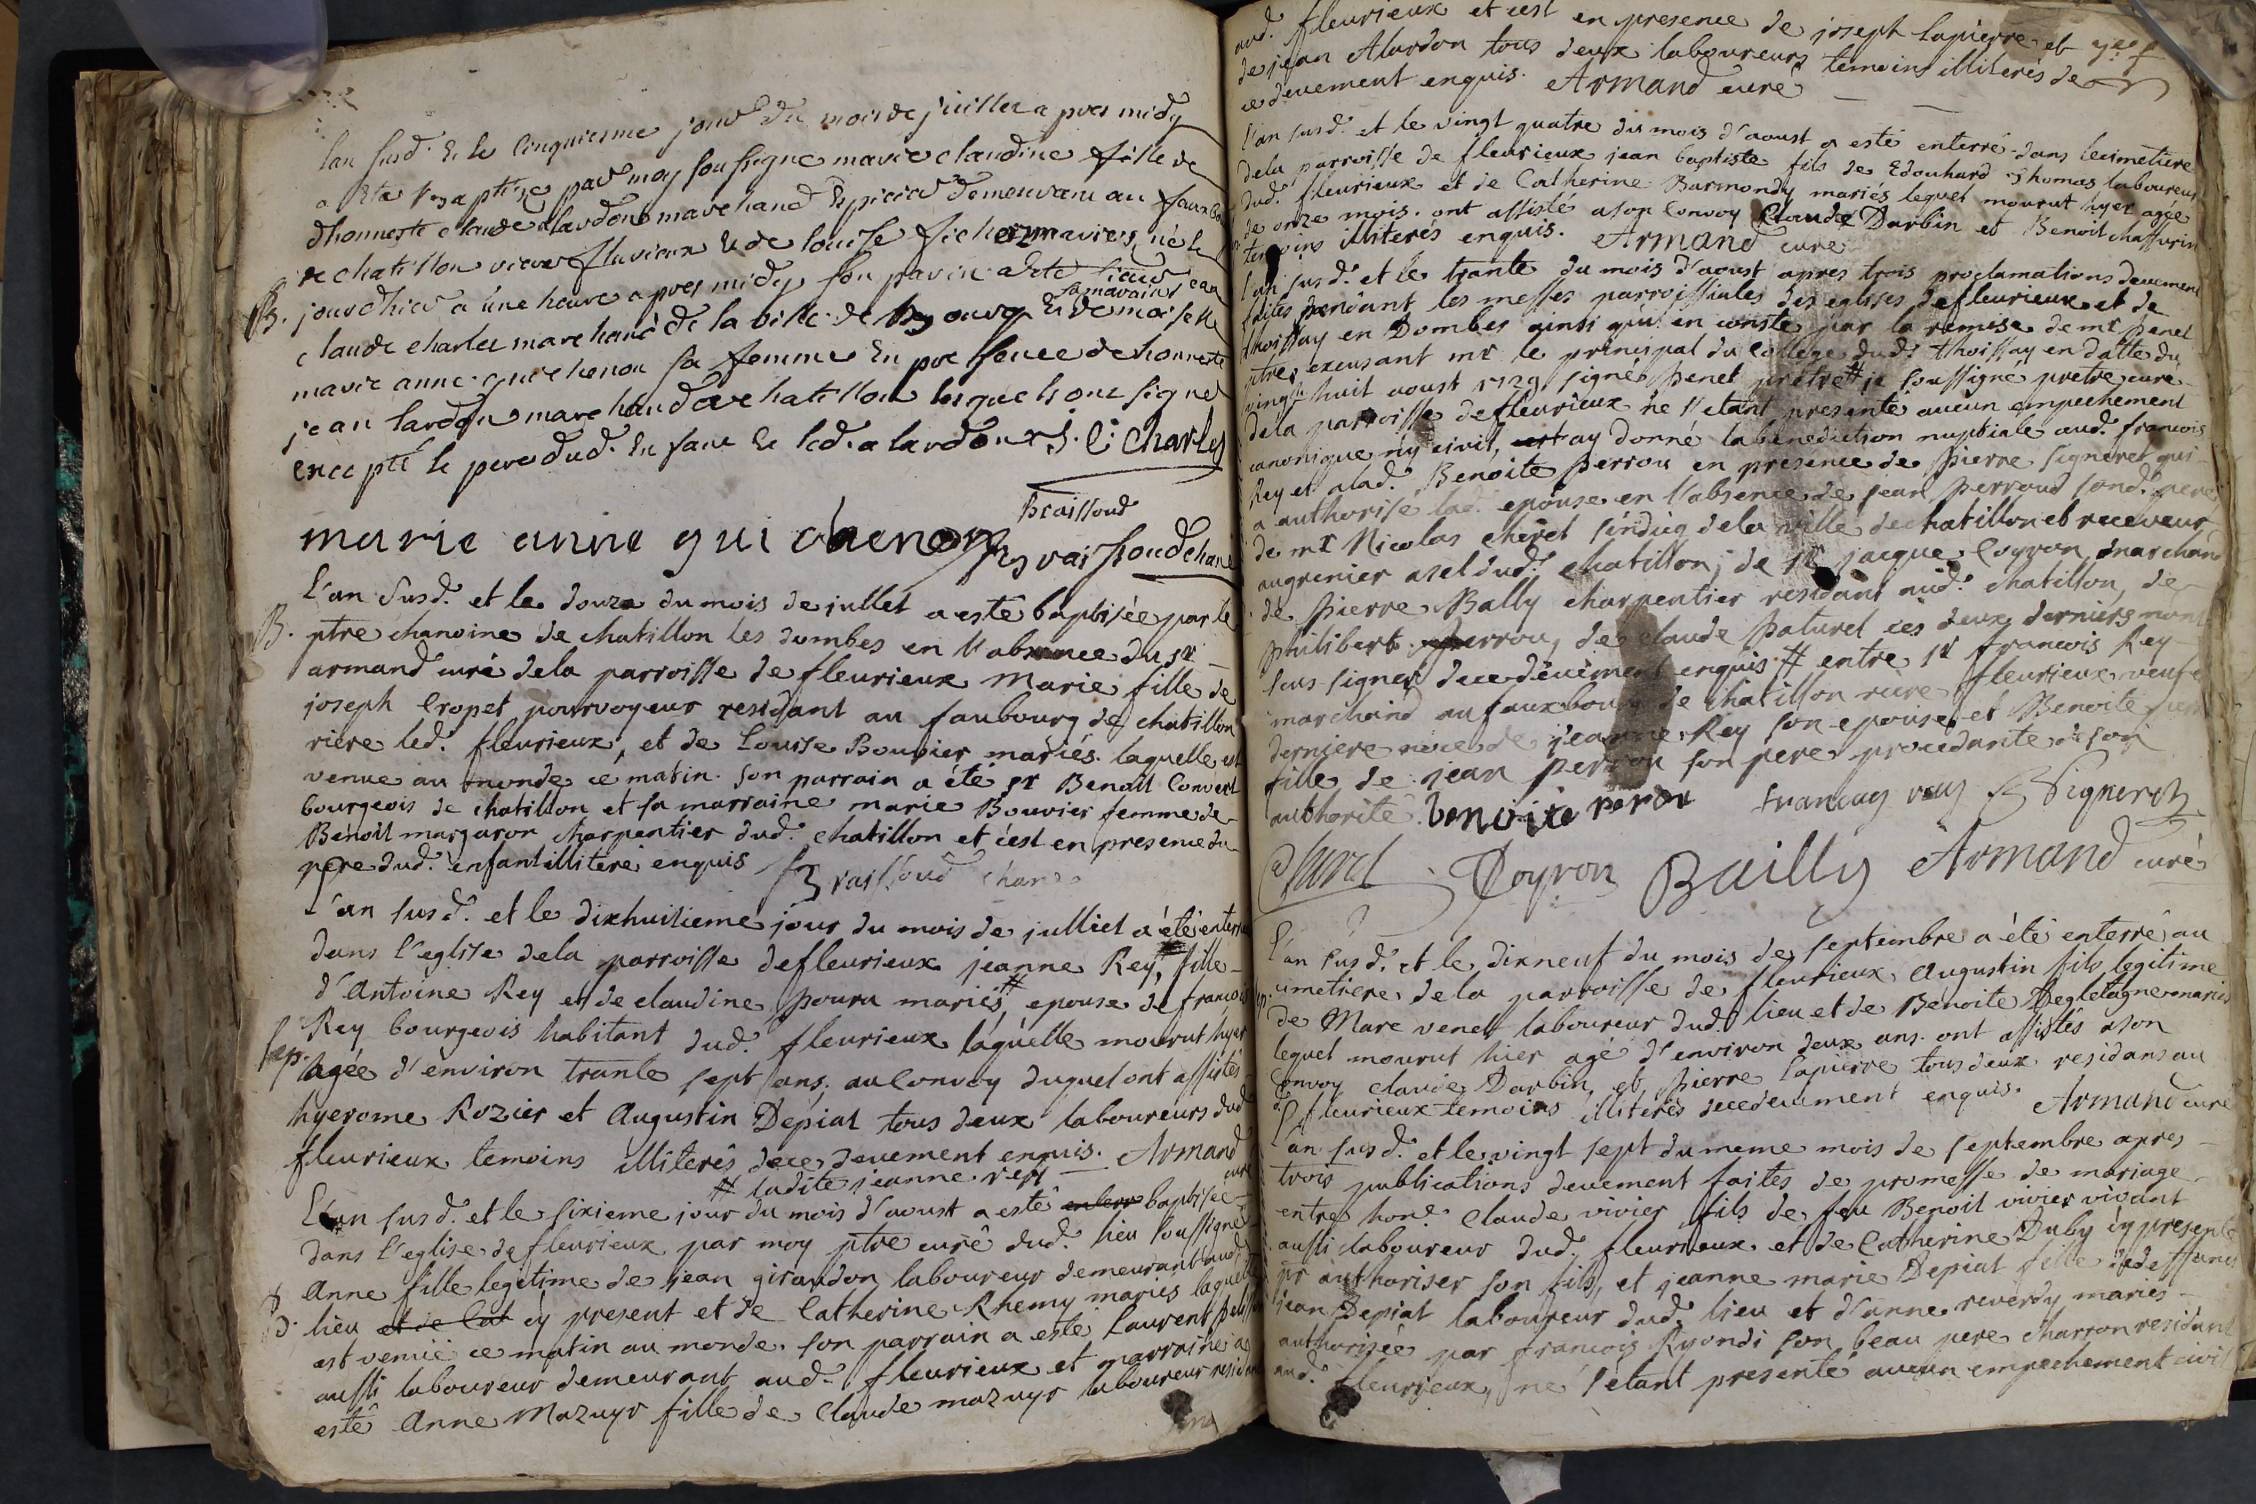 lan susd. & le cinquiesme jour du mois de juillet apres midy
a este baptisé par moy soussigné marie claudine fille de
dhonneste claude alardon marchand Epicier demeurant au
de chatillon riere flurieux & de louise fichet mariers, né le
B. jour dhier a une heure apres midy son parin a ete sieur
claude charles marchand de la ville de Bourg & demoiselle
sa maraine
marie anne guichenon sa femme En presence de honneste
jean lardon marchand de chatillon lesquels ont signé
excepté le pere dud. Enfant & led. alardon C: Charles
Braissoud
marie anne gui chenon Braissoud chane
L'an susd. et le douze du mois de jullet a esté baptisée par le
B. ptre chanoine de chatillon les dombes en l'absence du sr
armand curé dela parroisse de fleurieux Marie fille de
joseph Cropet pourvoyeur residant au faubourg de chatillon
riere led. fleurieux, et de Louise Bouvier mariés. laquelle est
venue au monde ce matin. son parrain a été sr Benoit Convert
bourgeois de chatillon et sa marraine marie Bouvier femme de
Benoit margaron charpentier dud. chatillon et c'est en presence du
pere dud. enfant illiteré enquis Braissoud chan.
L'an susd. et le dixhuitieme jour du mois de julliet a été enterré
dans l'eglise dela parroisse de fleurieux jeanne Rey, fille
d'Antoine Rey et de claudine poura mariés # epouse de francois
Rey bourgeois habitant dud. fleurieux laquelle mourut hyer
sep. agée d'environ trante sept ans. au Convoy duquel ont assistés
hyerome Rozier et Augustin Depiat tous deux laboureurs dud.
fleurieux temoins illiterés de ce devement enquis. Armand curé
# ladite jeanne rey
L'an susd. et le sixieme jour du mois d'aoust a esté enterr baptisée
dans l'eglise de fleurieux par moy ptre curé dud. lieu soussigné
Anne fille legitime de jean girandon laboureur demeurant aud.
B. lieu et de Cat cy present et de Catherine Rhemy mariés laquelle
est venue ce matin au monde. son parrain a esté Laurent
aussi laboureur demeurant aud. fleurieux et marraine a
esté Anne Mazuyr fille de Claude mazuyr laboureur residant
aud. fleurieux et c'est en presence de joseph lapierre et
de jean Alardon tous deux laboureurs temoins illiterés de
ce devement enquis. Armand curé
L'an susd. et le vingt quatre du mois d'aoust a esté enterré dans le cimetiere
dela parroisse de fleurieux jean baptiste fils de Edouhard Thomas laboureur
dud. fleurieux et de Catherine Barmondy mariés lequel mourut hyer agée
de onze mois. ont assisté a son Convoy Claude Darbin et Benoit chassurin
temoins illiterés enquis. Armand curé
L'an susd. et le trante du mois d'aoust apres trois proclamations devement
faites pendant les messes parroissiales des eglises de fleurieux et de
thoissay en Dombes ainsi qu'il en conste par la remise de mr penet
ptre, excusant mr le principal du College dud. thoissay en datte du
vingt huit aoust 1729 signé penet pretre # je soussigné pretre curé
dela parroisse de fleurieux ne s'etant presenté aucun empechement
canonique ny civil, ay donné la benediction nuptiale aud. francois
Rey et a lad. Benoite perrou en presence de pierre signeret qui
a authorisé lad. epouse en l'absence de jean perroud sond. pere,
de mr Nicolas cheret sindiq dela ville de chatillon et receveur
au grenier a sel dud. chatillon, de sr jacque Coyron marchand
de pierre Bally charpentier residant aud. chatillon, de
philibert perrou, de claude paturel ces deux derniers
sous signer de ce devement enquis. # entre sr francois Rey
marchand au fauxbourg de chatillon riere fleurieux veuf
derniere noce de jeanne Rey son epouse et Benoite
fille de jean perrou son pere procedante de son
authorité. benoite perou francoy rey Signeret
Cheret Coyron Bailly Armand curé
L'an susd. et le dixneuf du mois de septembre a été enterré au
cimetiere dela parroisse de fleurieux Augustin fils legitime
de Marc venet laboureur dud. lieu et de Benoite Degletagne mariés
lequel mourut hier agé d'environ deux ans. ont assistés a son
Convoy claude Darbin, et pierre lapierre tous deux residans au
d. fleurieux temoins illiterés de ce devement enquis. Armand curé
L'an susd. et le vingt sept du meme mois de septembre apres
trois publications devement faites de promesse de mariage
entre hone. Claude vivier fils de feu Benoit vivier vivant
aussi laboureur dud. fleurieux et de Catherine Duby cy presente
pr authoriser son fils, et jeanne marie Depiat fille de deffunct
jean Depiat laboureur dud. lieu et d'anne reverdy mariés
authorisée par francois Ryondi son beau pere charron residant
aud. fleurieux, ne s'étant presenté aucun empechement civil